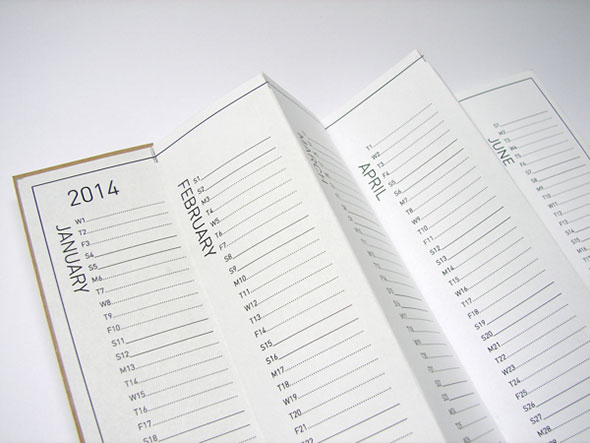 2014
JANUARY
W1
T2
F3
S4
S5
M6
T7
W8
T9
F10
S11
S12
M13
T14
W15
T16
F17
S18
FEBRUARY
S1
S2
M3
T4
W5
T6
F7
S8
S9
M10
T11
W12
T13
F14
S15
S16
M17
T18
W19
T20
F21
S22
MARCH
APRIL
T1
W2
T3
F4
S5
S6
M7
T8
W9
T10
F11
S12
S13
M14
T15
W16
T17
F18
S19
S20
M21
T22
W23
T24
F25
S26
S27
M28
JUNE
S1
M2
T3
W4
T5
F6
S7
S8
M9
T10
W11
T12
F13
S14
S15
M16
T17